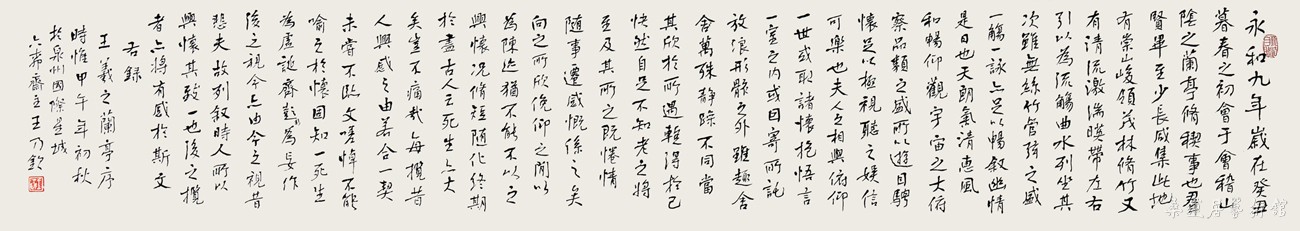 永和九年歲在癸丑
暮春之初會于會稽山
陰之蘭亭脩稧事也羣
賢畢至少長咸集此地
有崇山峻領茂林脩竹又
有清流激湍暎帶左右
引以為流觴曲水列坐其
次雖無絲竹管弦之盛
一觴一詠亦足以暢叙幽情
是日也天朗氣清惠風
和暢仰觀宇宙之大俯
察品類之盛所以遊目騁
懷足以極視聽之娛信
可樂也夫人之相與俯仰
一世或取諸懷抱悟言
一室之內或因寄所託
放浪形骸之外雖趣舍
舍萬殊静躁不同當
其欣於所遇輙得於己
快然自足不知老之將
至及其所之既惓情
隨事遷感慨係之矣
向之所欣俛仰之間以
為陳迹猶不能不以之
興懷況脩短隨化終期
於盡古人云死生亦大
矣豈不痛哉每攬昔
人興感之由若合一契
未嘗不臨文嗟悼不能
喻之於懷固知一死生
為虛誕齊彭殤為妄作
後之視今亦由今之視昔
悲夫故列叙時人所以
興懷其致一也後之攬
者亦將有感於斯文
右錄
王羲之蘭亭序
時惟甲午年初秋
於泉州國際藝城
六希齋主王乃欽
桑蓮居藝術館